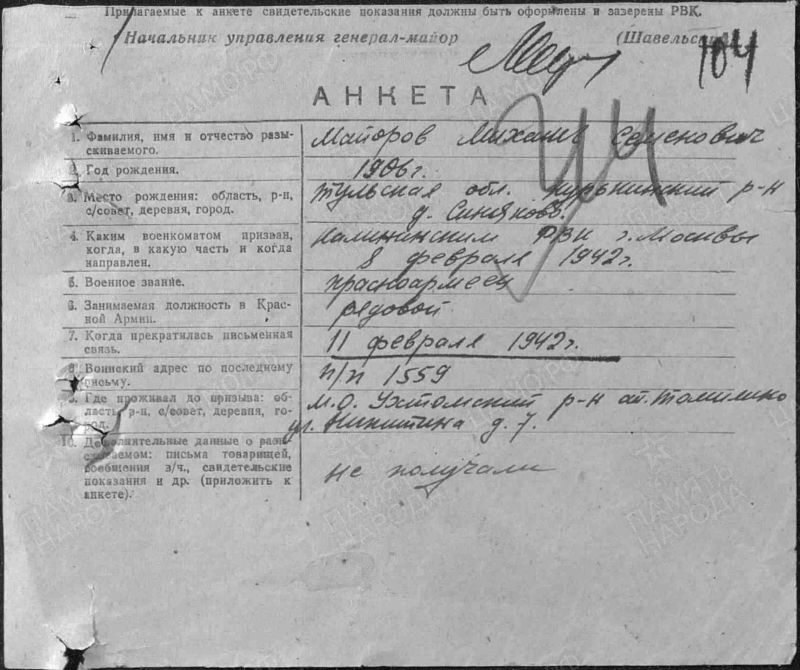 Прилагаемые к анкете свидетельские показания должны быть оформлены и заверены РВК.
Начальник управления генерал-майор (Шавельский)
104
АНКЕТА
1. Фамилия, имя и отчество разы-
скиваемого.
Майоров Михаил Семенович
2. Год рождения.
1906 г.
3. Место рождения: область, р-н,
с/совет, деревня, город.
Тульская обл. Куркинский р-н
д. Синяково.
4. Каким военкоматом призван,
когда, в какую часть и когда
направлен.
Калининским РВК г. Москвы
8 февраля 1942 г.
5. Военное звание.
красноармеец
6. Занимаемая должность в Крас-
ной Армии.
рядовой
7. Когда прекратилась письменная
связь.
11 февраля 1942 г.
8. Воинский адрес по последнему
письму.
п/п 1559
9. Где проживал до призыва: об-
ласть, р-н, с/совет, деревня, го-
род.
М.О. Ухтомский р-н ст. Томилино
ул. Никитина д. 7.
10. Дополнительные данные о разы-
скиваемом: письма товарищей,
сообщения в/ч., свидетельские
показания и др. (приложить к
анкете).
не получали
ПАМЯТЬ
НАРОДА